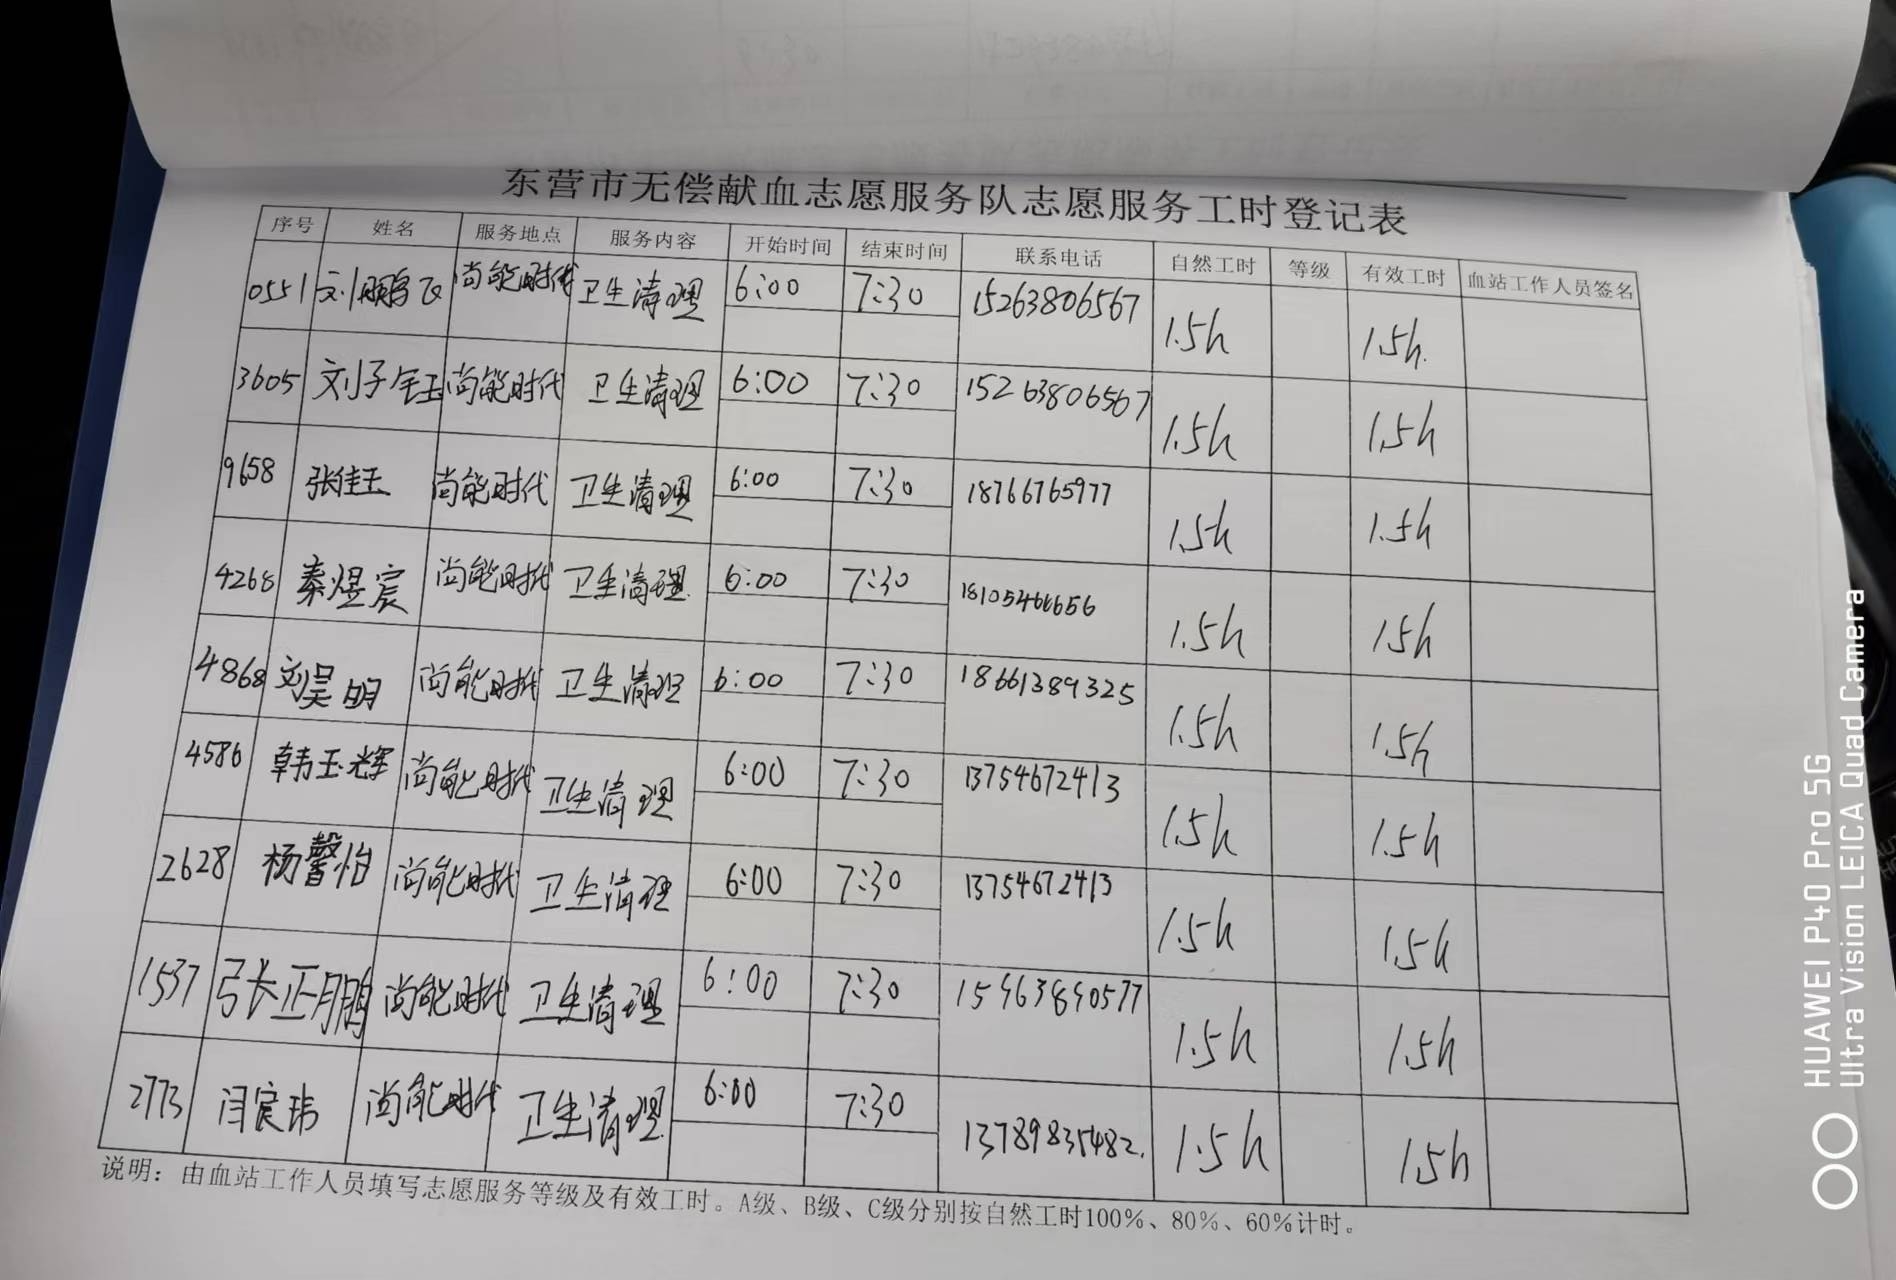 东营市无偿献血志愿服务队志愿服务工时登记表
序号 姓名 服务地点 服务内容 开始时间 结束时间 联系电话 自然工时 等级 有效工时 血站工作人员签名
0551 刘鹏飞 尚能时代 卫生清理 6:00 7:30 15263806567 1.5h 1.5h.
3605 刘子钰 尚能时代 卫生清理 6:00 7:30 15263806567 1.5h 1.5h
9658 张佳玉 尚能时代 卫生清理 6:00 7:30 18766765977 1.5h 1.5h
4268 秦煜宸 尚能时代 卫生清理 6:00 7:30 1.5h 1.5h
4868 刘昊明 尚能时代 卫生清理 6:00 7:30 18661389325 1.5h 1.5h
4586 韩玉辉 尚能时代 卫生清理 6:00 7:30 13754672413 1.5h 1.5h
2628 杨馨怡 尚能时代 卫生清理 6:00 7:30 13754672413 1.5h 1.5h
1537 张正鹏 尚能时代 卫生清理 6:00 7:30 1.5h 1.5h
2773 闫宸玮 尚能时代 卫生清理 6:00 7:30 13789835482. 1.5h 1.5h
说明：由血站工作人员填写志愿服务等级及有效工时。A级、B级、C级分别按自然工时100%、80%、60%计时。
HUAWEI P40 Pro 5G
Ultra Vision LEICA Quad Camera